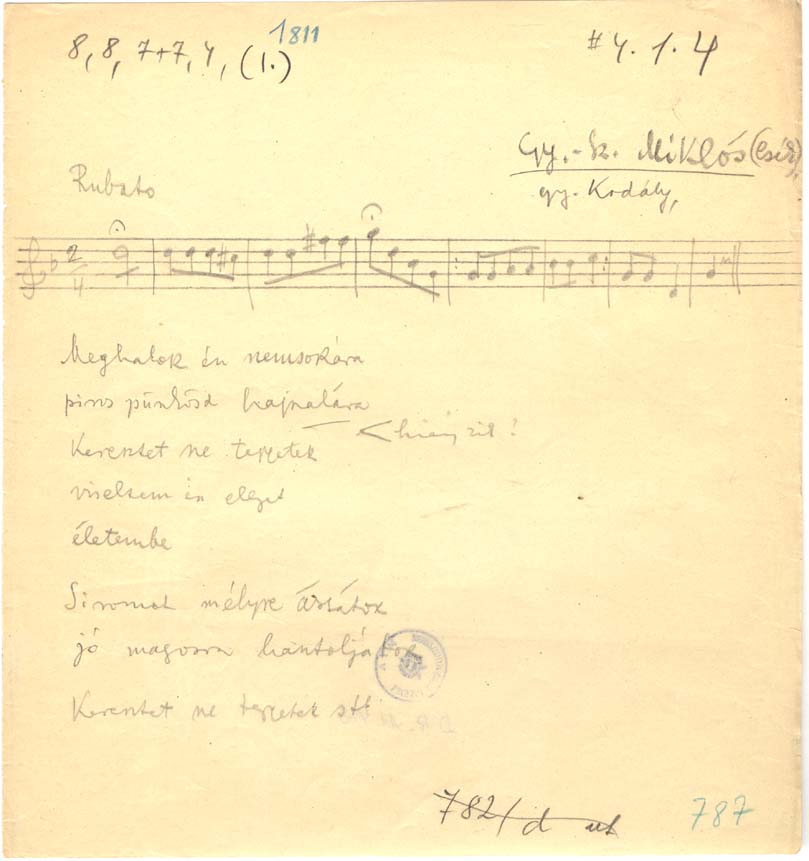 8, 8, 7+7, 4, (1.)
1811
# 4. 1. 4
Gy.-Sz. Miklós (Csík)
gy. Kodály,
Rubato
2/4
Meghalok én nemsokára
piros pünkösd hajnalára
< hiányzik!
Keresztet ne tegyetek
viseltem én eleget
életembe
Siromat mélyre ássátok
jó magosra hantoljátok
Keresztet ne tegyetek stb.
782/d
787